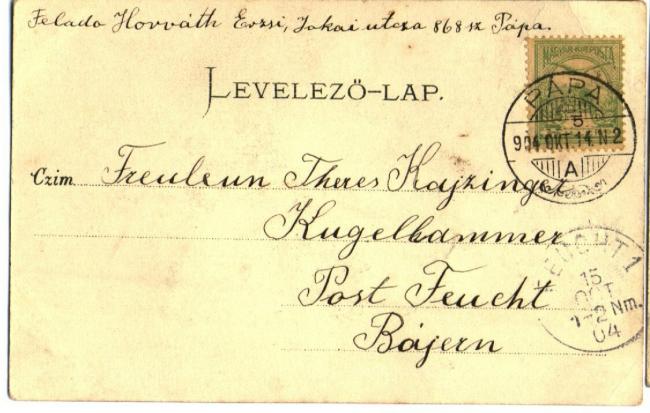 Felado Horváth Erzsi, Jokai utcza 868 sz Pápa.
LEVELEZŐ-LAP.
MAGYAR KIR. POSTA
PÁPA
5
904 OKT. 14. N 2
A
Czim Freuleun Theres Kajzinger
Kugelhammer
Post Feucht
Bájern
FEUCHT 1
15
OCT
1-2 Nm.
04